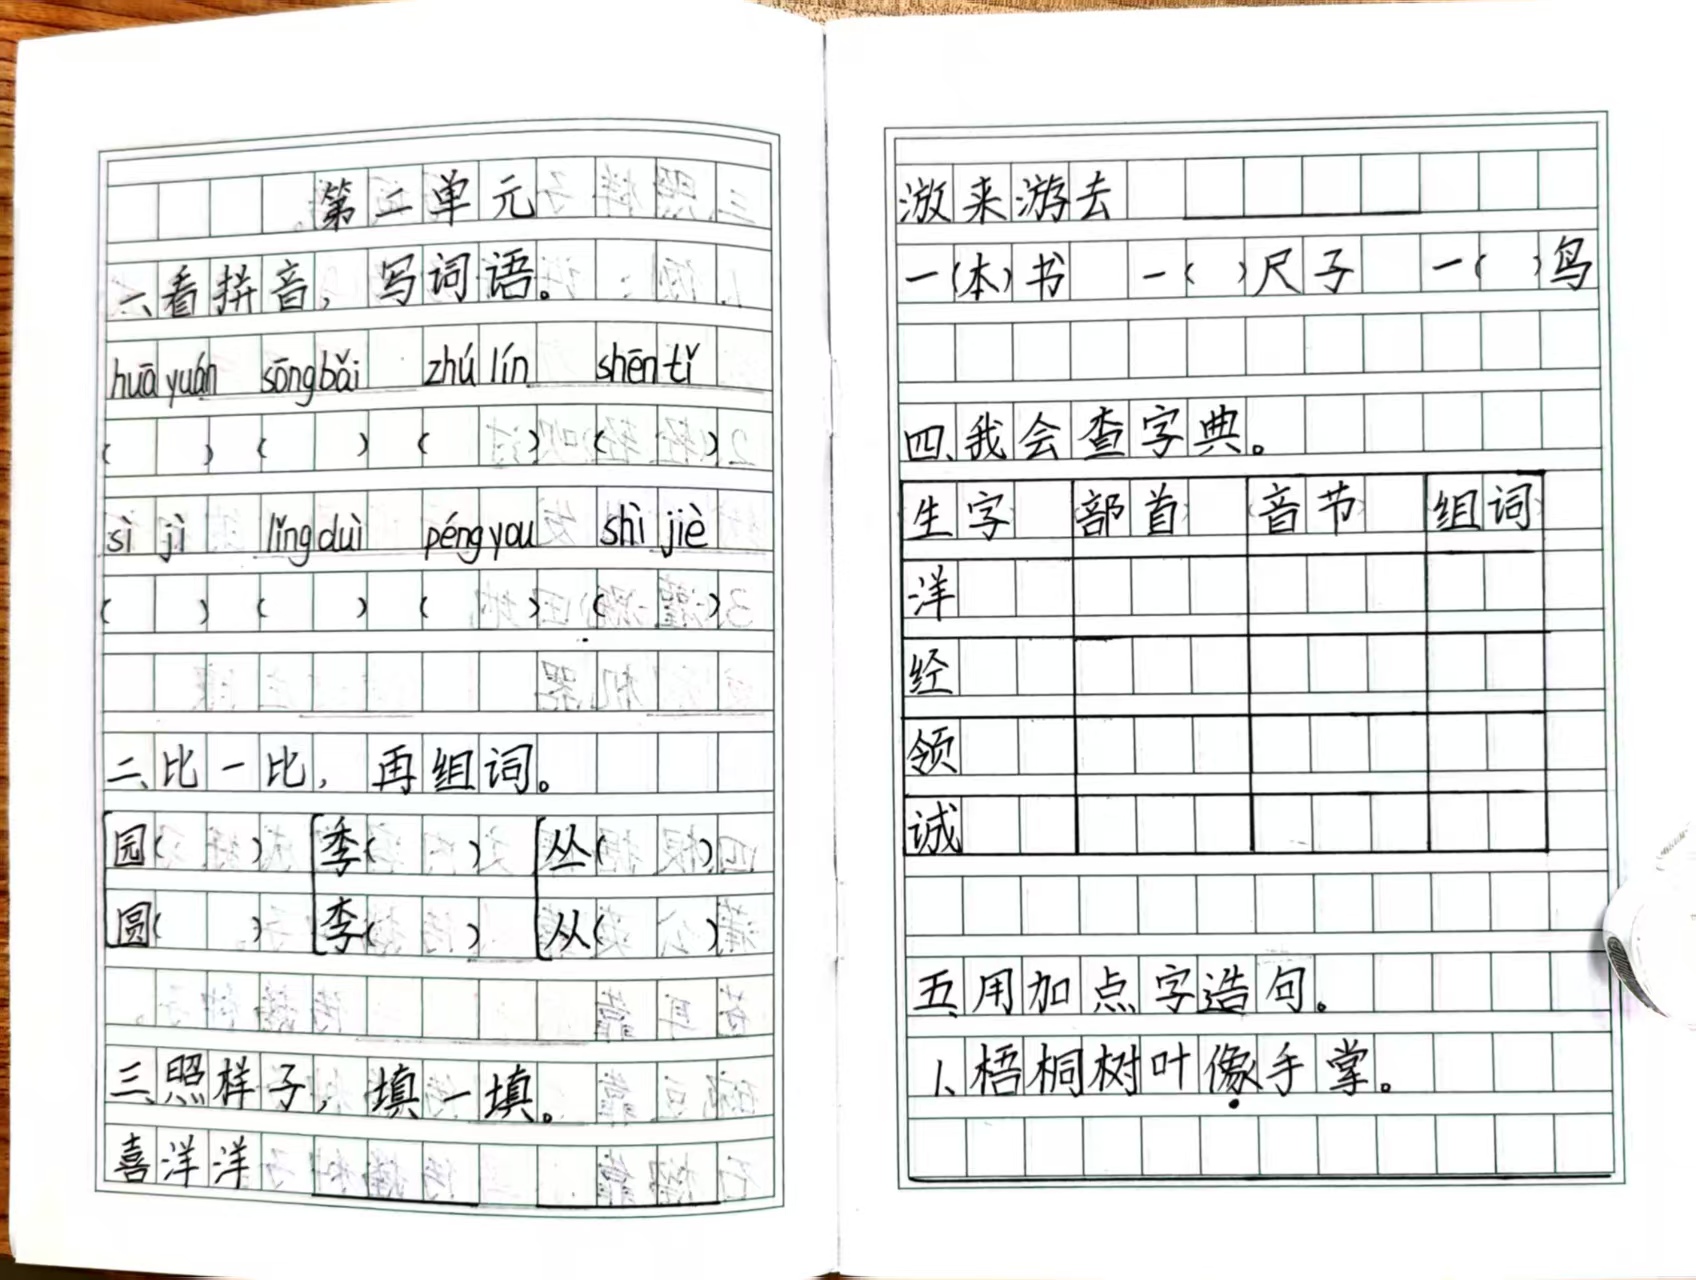 第二单元
一、看拼音，写词语。
huā yuán sōng bǎi zhú lín shēn tǐ
( ) ( ) ( ) ( )
sì jì lǐng duì péng you shì jiè
( ) ( ) ( ) ( )
二、比一比，再组词。
园( ) 季( ) 丛( )
圆( ) 李( ) 从( )
三、照样子，填一填。
喜洋洋
游来游去
一(本)书 一( )尺子 一( )鸟
四、我会查字典。
生字 部首 音节 组词
洋
经
领
诚
五、用加点字造句。
1、梧桐树叶像手掌。